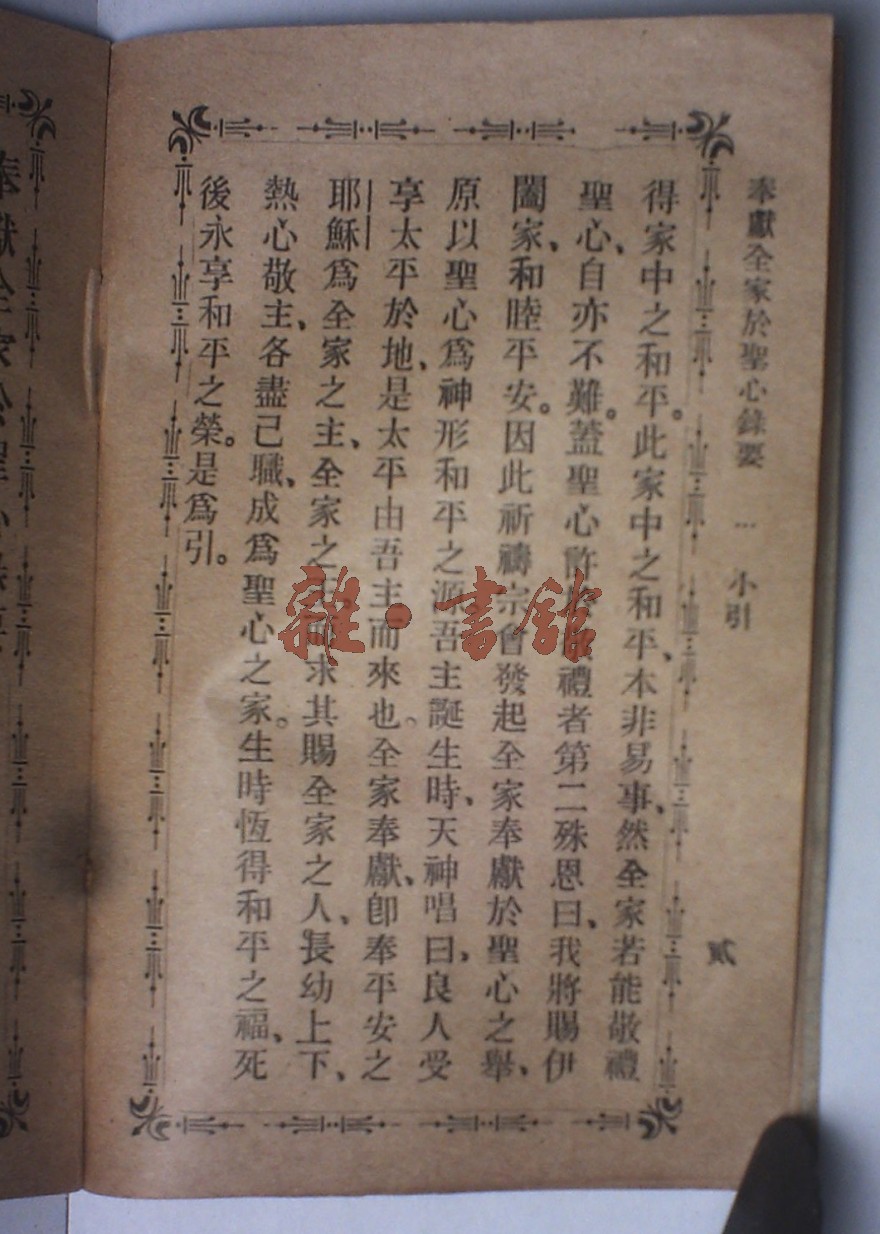 奉獻全家於聖心錄要 … 小引 貳
得家中之和平。此家中之和平、本非易事、然全家若能敬禮
聖心、自亦不難。蓋聖心許 禮者第二殊恩曰、我將賜伊
闔家、和睦平安。因此祈禱宗會發起全家奉獻於聖心之舉、
原以聖心爲神形和平之源吾主誕生時、天神唱曰、良人受
享太平於地、是太平由吾主而來也。全家奉獻、卽奉平安之
耶穌爲全家之主、全家之 求其賜全家之人、長幼上下、
熱心敬主、各盡己職、成爲聖心之家。生時恆得和平之福、死
後永享和平之榮。是爲引。
雜·書館